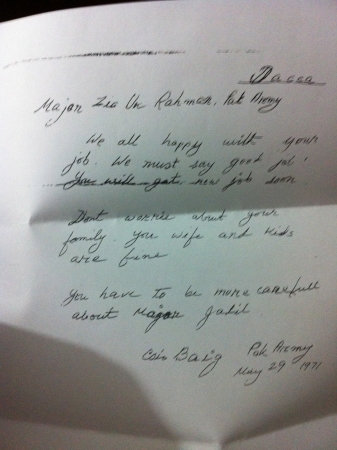 Dacca
Major Zia Ur Rahman, Pak Army
We all happy with your
job. We must say good job!
You will get new job soon
Dont worrie about your
family. You wife and kids
are fine
You have to be more carefull
about Major Jalil.
Baig Pak Army
May 29 1971